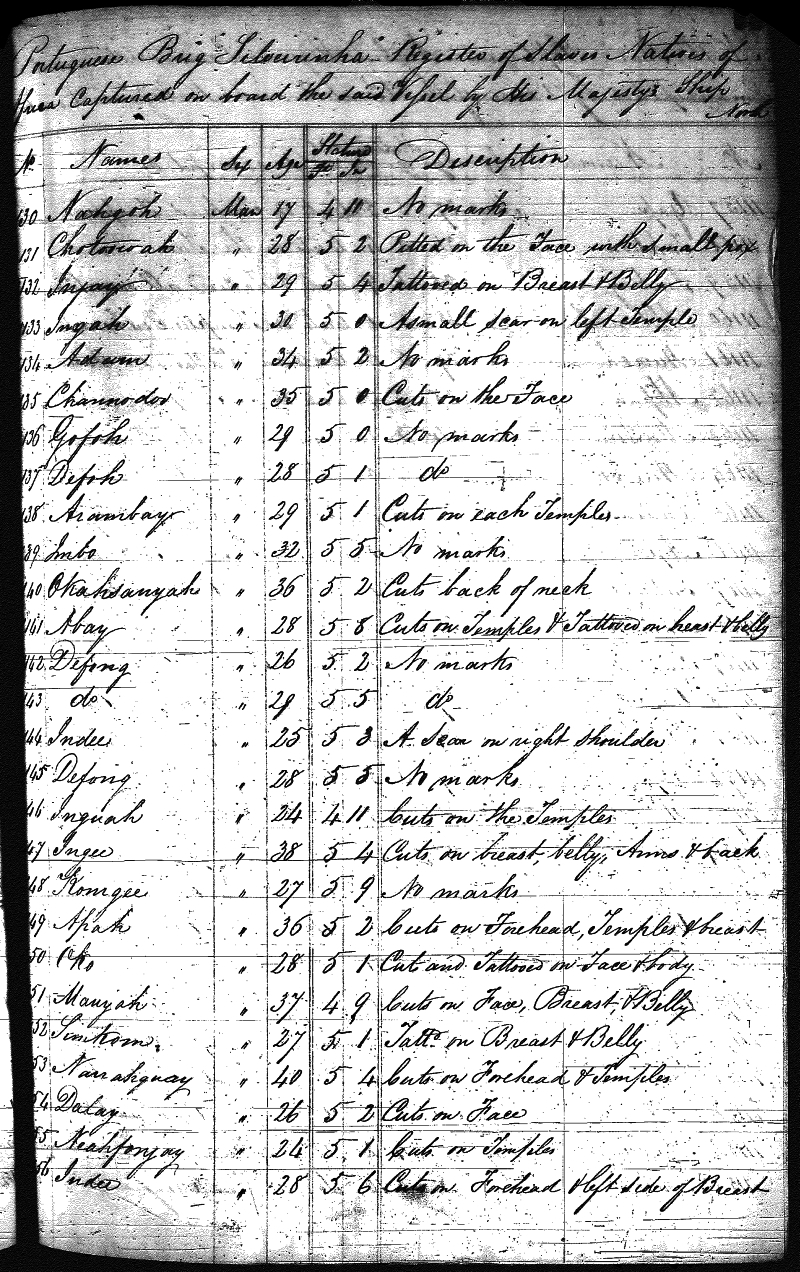 Portuguese Brig Silveirinha Register of Slaves Natives of
Africa Captured on board the said Vessel by His Majestys Ship
North
No Names Sex Age Stature Description
Ft In
130 Nahgoh Man 17 4 11 No marks
131 Chotoowah " 28 5 2 Pitted on the Face with small pox
132 Injay " 29 5 4 Tattooed on Breast & Belly
133 Ingah " 30 5 0 A small scar on left Temple
134 Adam " 34 5 2 No marks
135 Channodoo " 35 5 0 Cuts on the Face
136 Gofoh " 29 5 0 No marks
137 Defoh " 28 5 1 do
138 Arambay " 29 5 1 Cuts on each Temples
139 Imbo " 32 5 5 No marks
140 Okahsanyah " 36 5 2 Cuts back of neck
141 Abay " 28 5 8 Cuts on Temples & Tattooed on breast & belly
142 Defong " 26 5 2 No marks
143 do " 29 5 5 do
144 Indee " 25 5 3 A Scar on right shoulder
145 Defong " 28 5 5 No marks
46 Inguah " 24 4 11 Cuts on the Temples
47 Ingee " 38 5 4 Cuts on breast, belly, Arms & back
48 Komgee " 27 5 9 No marks
49 Apah " 36 5 2 Cuts on Forehead, Temples & breast
50 Oko " 28 5 1 Cut and Tattooed on Face & body
51 Manjah " 37 4 9 Cuts on Face, Breast, & Belly
52 Simkom " 27 5 1 Tattd. on Breast & Belly
53 Narrahguay " 40 5 4 Cuts on Forehead & Temples
54 Dalay " 26 5 2 Cuts on Face
55 Neahfonjay " 24 5 1 Cuts on Temples
56 Indee " 28 5 6 Cuts on Forehead & left side of Breast